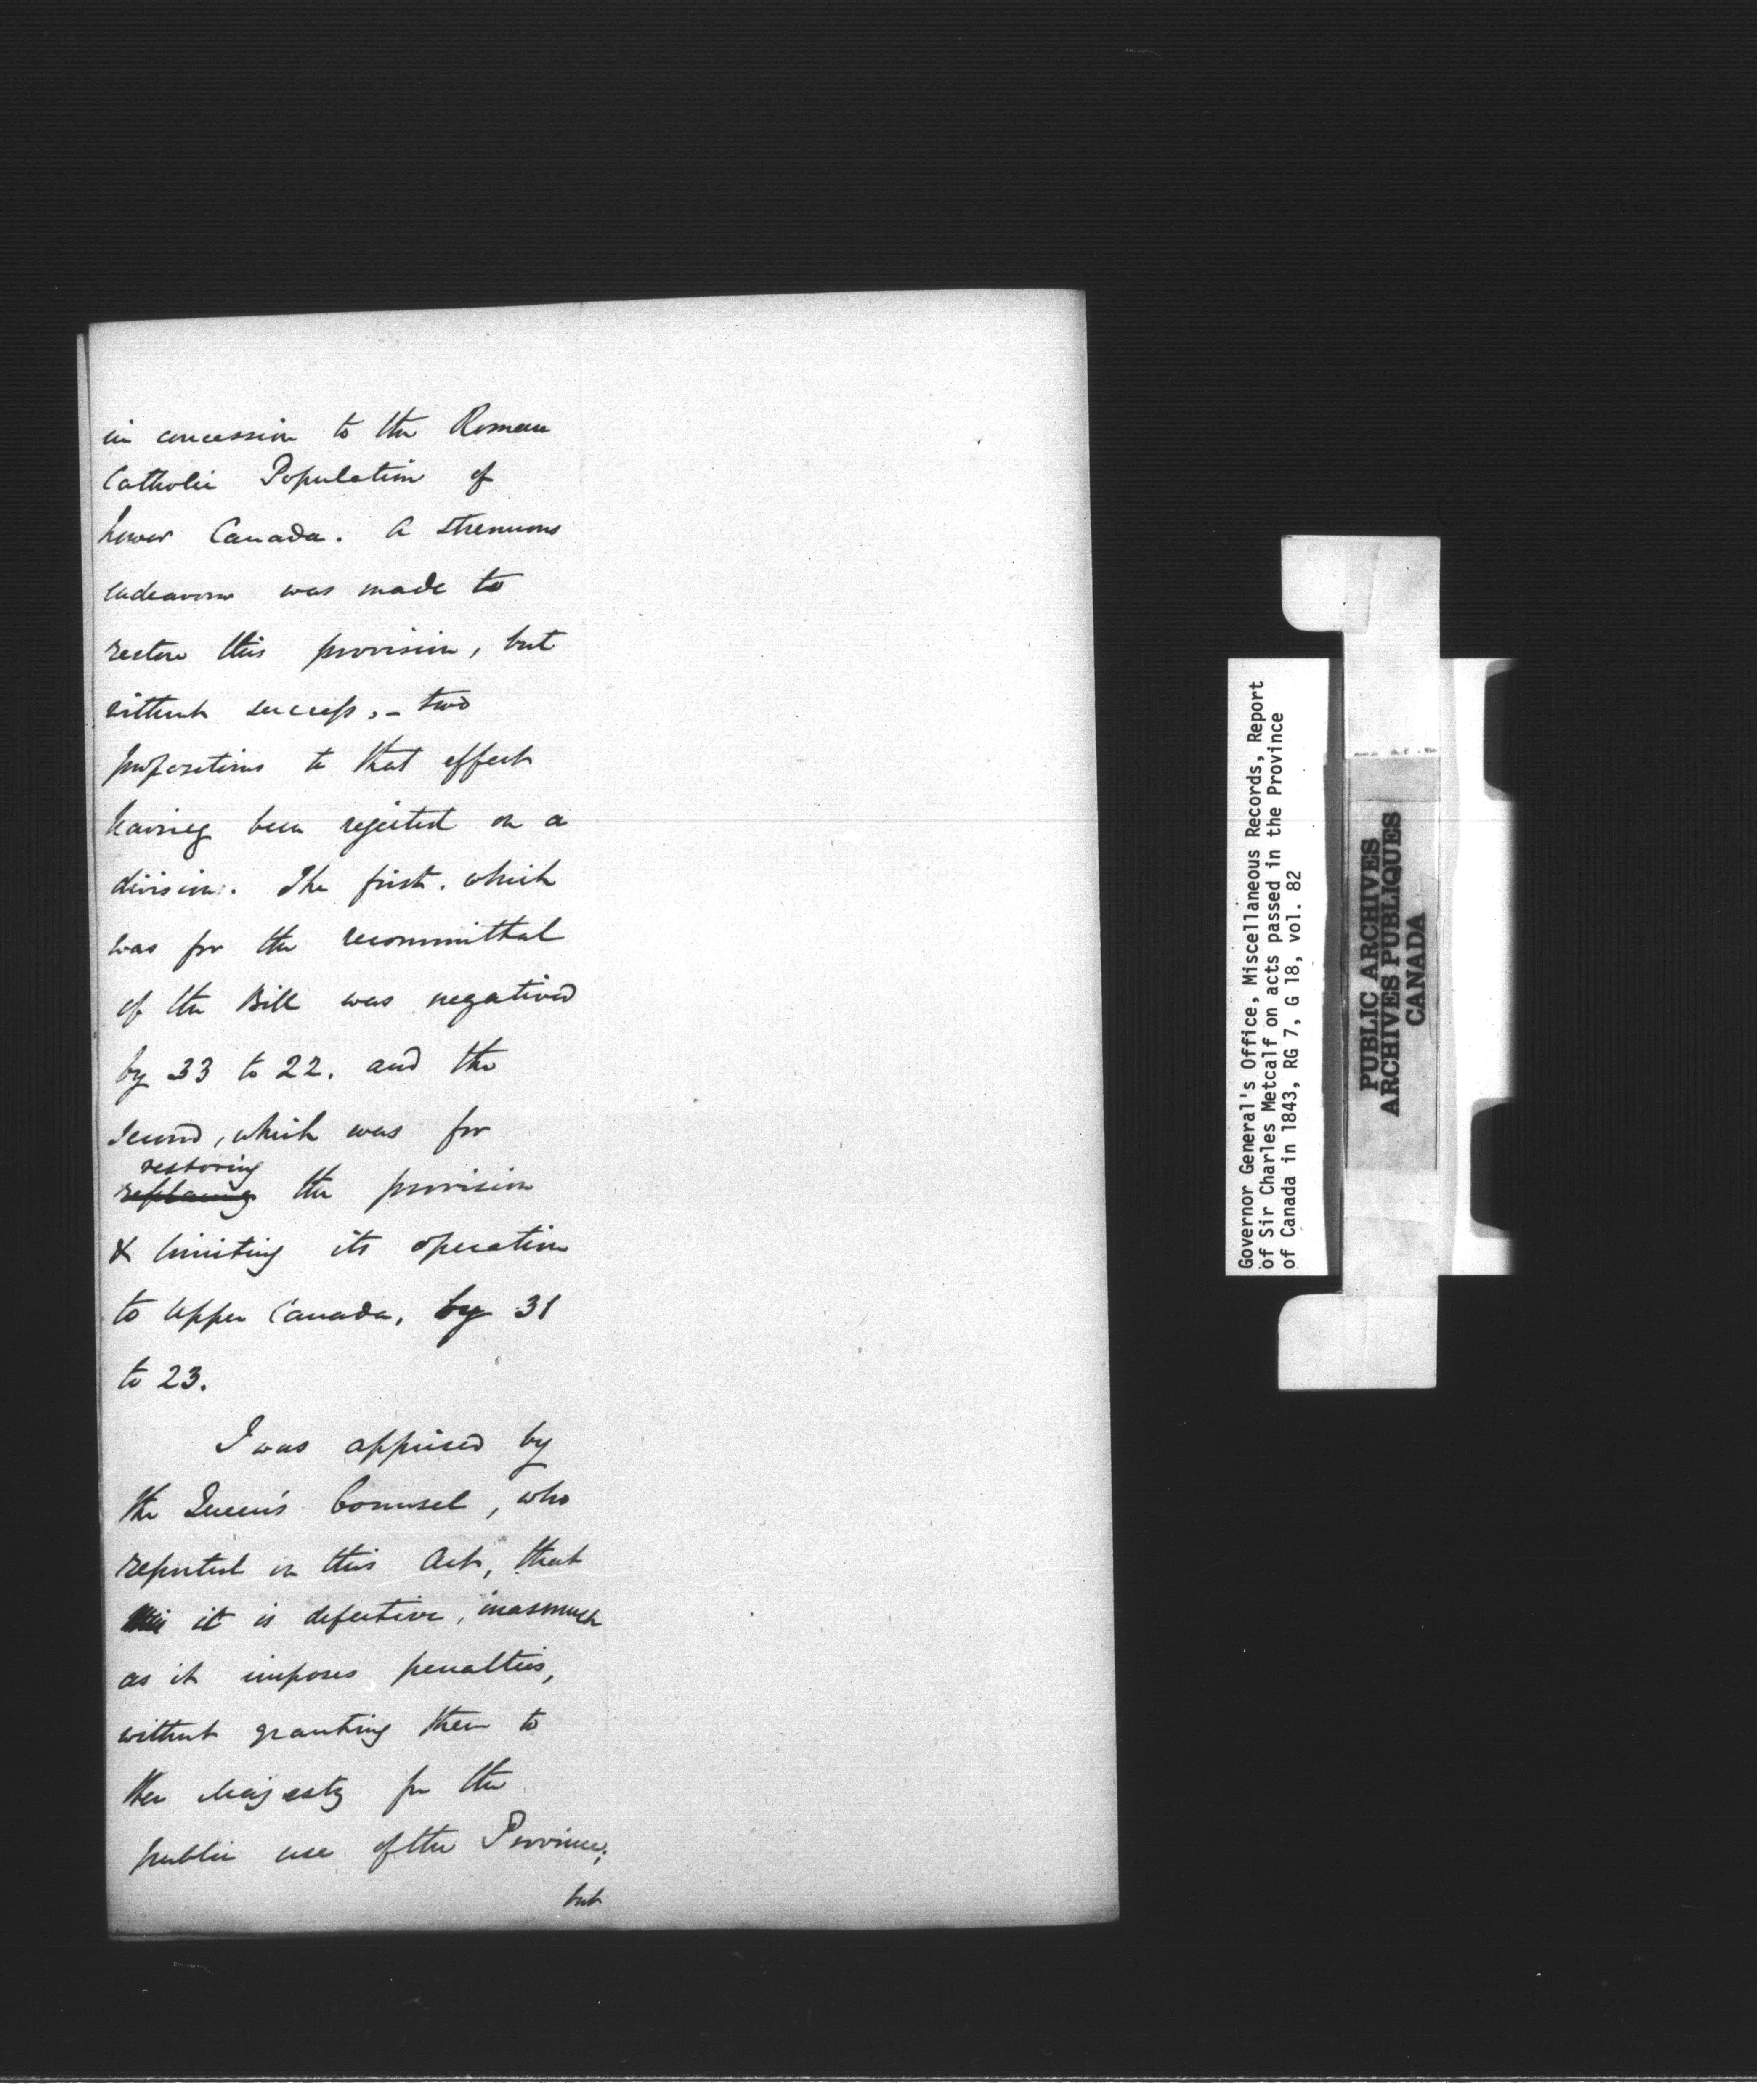 in concession to the Roman
Catholic Population of
Lower Canada. A strenuous
endeavour was made to
restore this provision, but
without success, - two
propositions to that effect
having been rejected on a
division. The first. which
was for the recommittal
of the Bill was negatived
by 33 to 22. and the
second, which was for
restoring
replacing the provision
& limiting its operation
to Upper Canada, by 31
to 23.
I was apprised by
the Queen's Counsel, who
reported on this Act, that
it is defective, inasmuch
as it imposes penalties,
without granting them to
Her Majesty for the
public use of the Province;
but
Governor General's Office, Miscellaneous Records, Report
of Sir Charles Metcalf on acts passed in the Province
of Canada in 1843, RG 7, G 18, vol. 82
PUBLIC ARCHIVES
ARCHIVES PUBLIQUES
CANADA